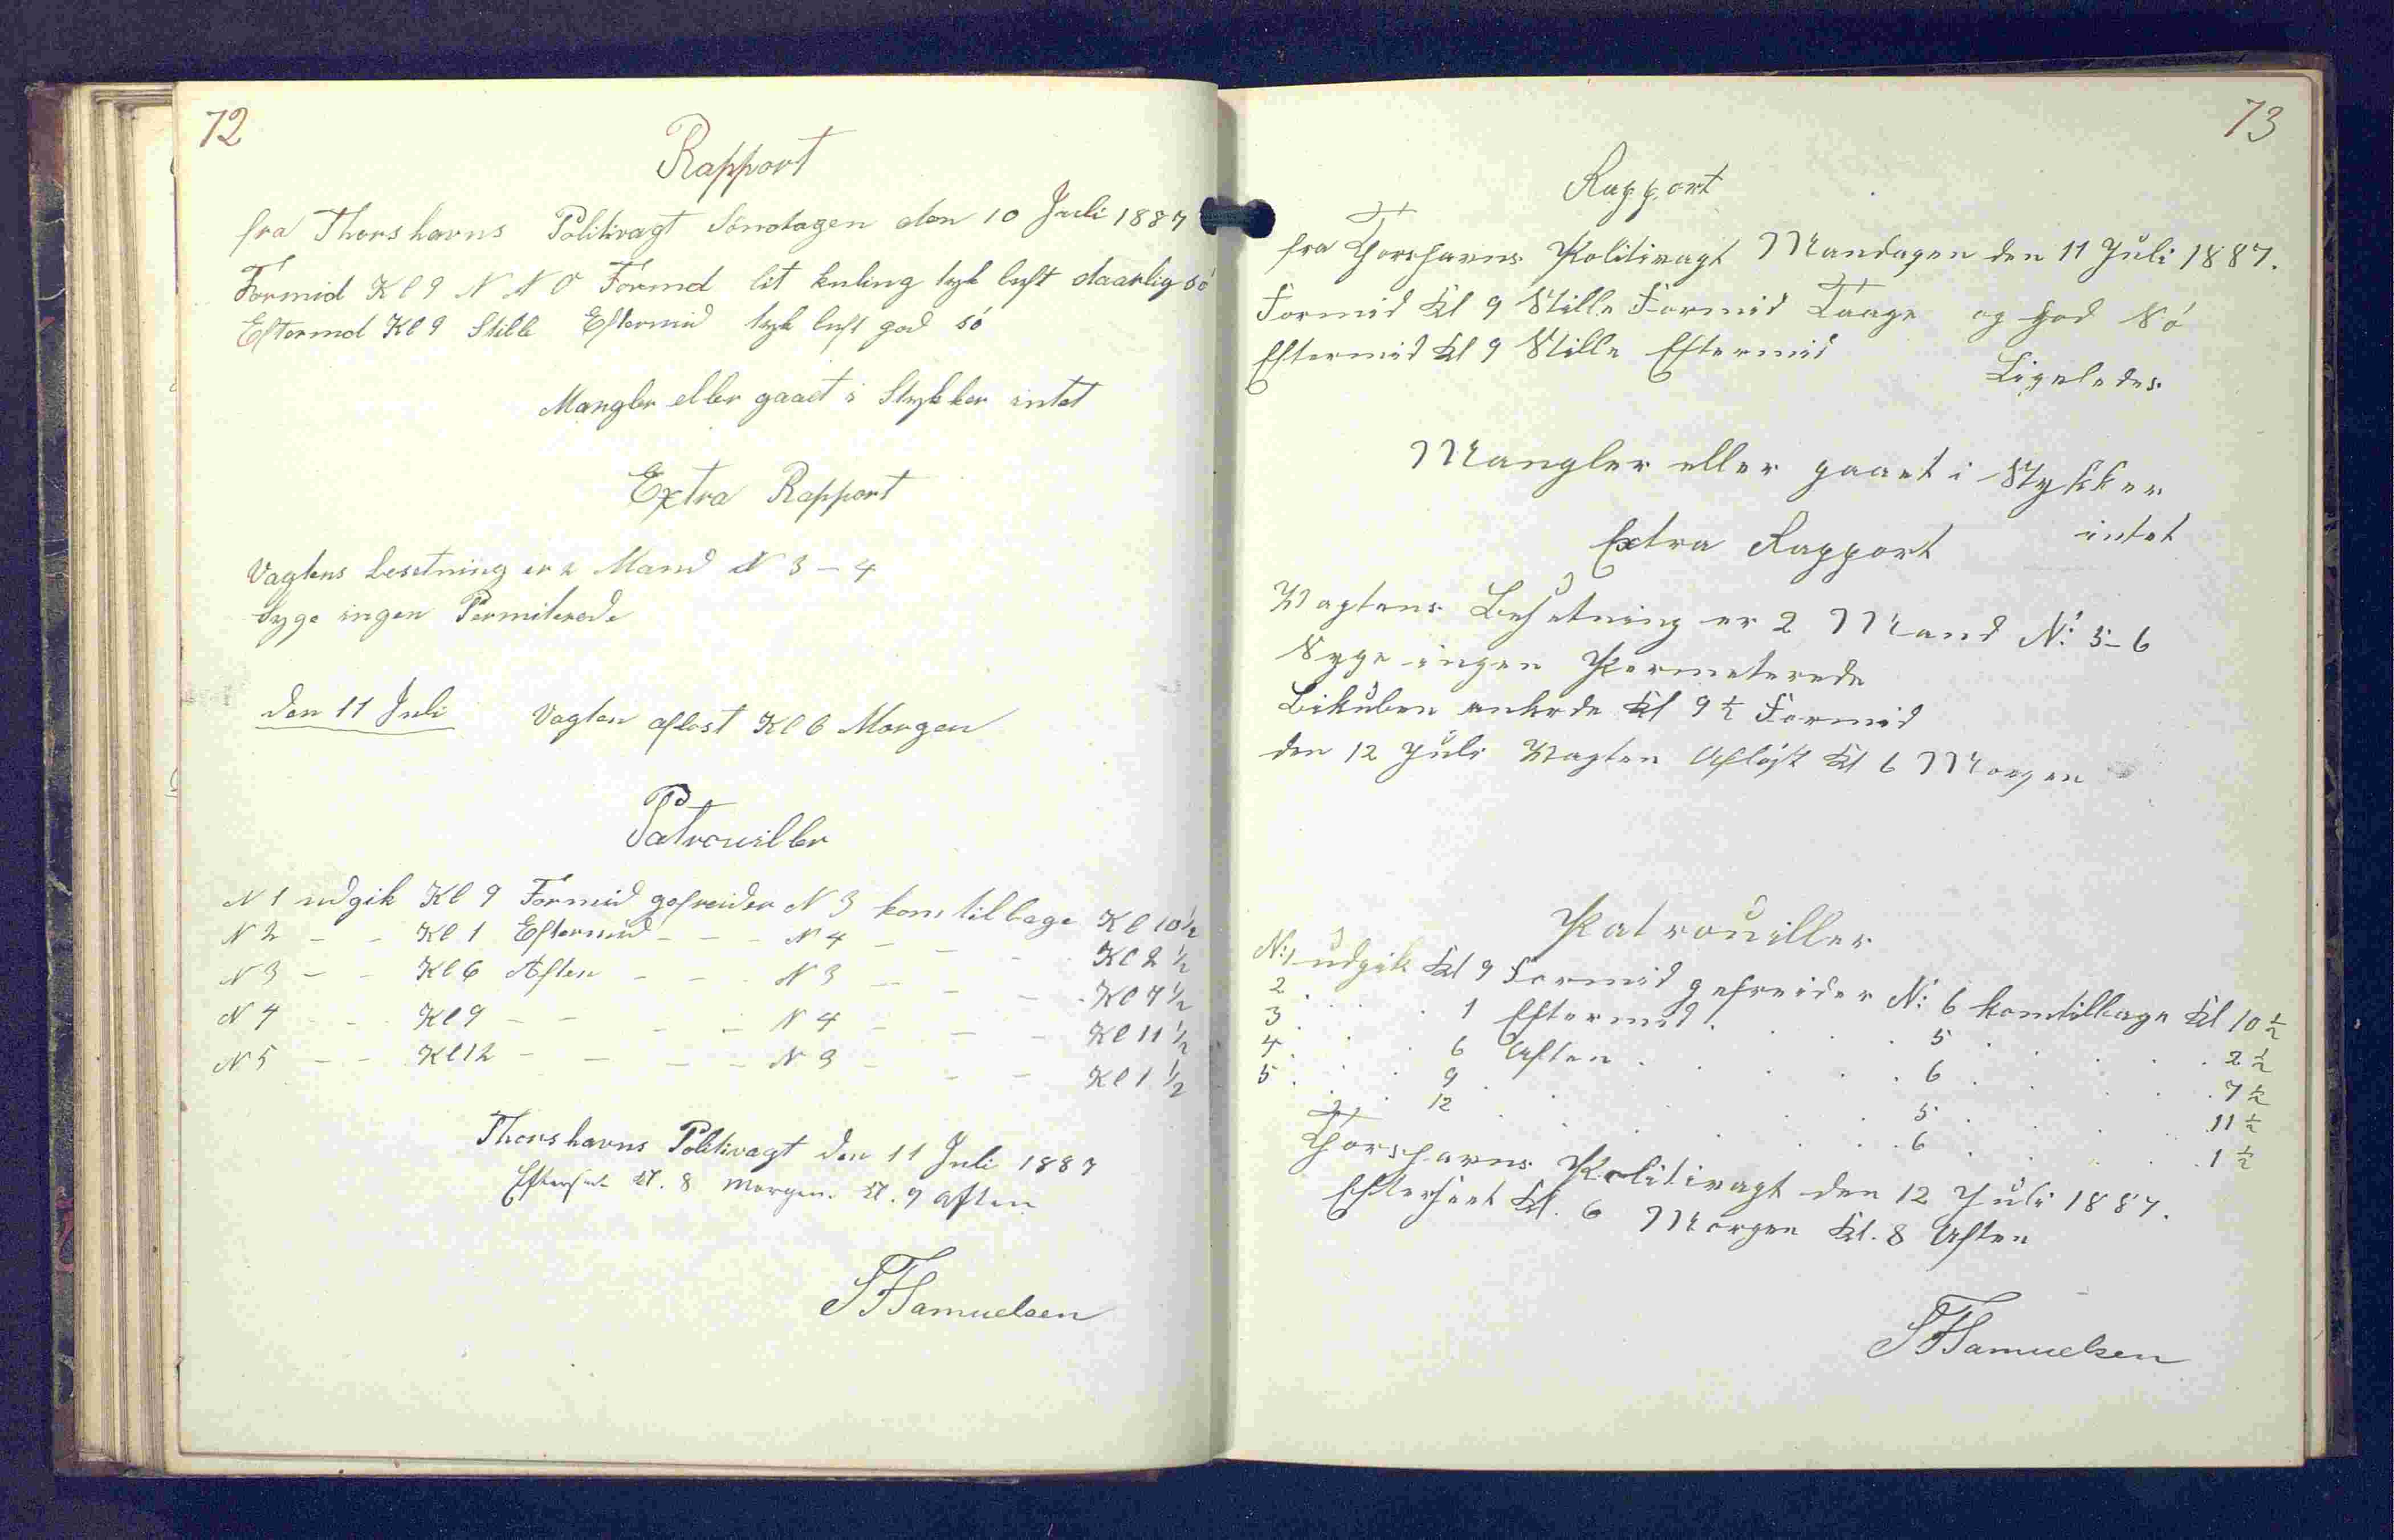 72
Rapport
fra Thorshavns Politivagt Søndagen den 10 Juli 1887
Formid Kl 9 N N O Formd lit kuling tyk luft daarlig só
Eftermd Kl 9 Stille Eftermid tyk luft god só
Mangler eller gaaet i Stykker intet
Extra Rapport
Vagtens besetning er 2 Mand N 3 – 4
Syge ingen Permiterede
den 11 Juli Vagten aflost Kl 6 Morgen
Patrouiller
N 1 udgik Kl 9 Formid gefreider N 3 kom tilbage Kl 10½
N 2 – – Kl 1 Eftermid – – – N 4 – – – Kl 2 ½
N 3 – – Kl 6 Aften – – N 3 – – – Kl 7 ½
N 4 – – Kl 9 – – – – N 4 – – – Kl 11 ½
N 5 – – Kl 12 – – – – N 3 – – – Kl 1 ½
Thorshavns Politivagt den 11 Juli 1887
Efterseet Kl. 8 Morgen. Kl. 9 Aften
S F Samuelsen
73
Rapport
fra Thorshavns Politivagt Mandagen den 11 Juli 1887.
Formid Kl 9 Stille Formid Taage og god Só
Eftermid Kl 9 Stille Eftermid
Ligeledes
Mangler eller gaaet i Stykker
intet
Extra Rapport
Vagtens Besetning er 2 Mand N: 5–6
Syge ingen Permeterede
Bikuben ankrede Kl 9 ½ Formid
den 12 Juli Vagten Afløst Kl 6 Morgen
Patrouiller
N: 1 udgik Kl 9 Formid gefreider N: 6 kom tilbage Kl 10 ½
2 . . . 1 Eftermid . . . 5 . . . . 2 ½
3 . . . 6 Aften . . . . 6 . . . . 7 ½
4 . . . 9 . . . . . 5 . . . . 11 ½
5 . . . 12 . . . . . 6 . . . . 1 ½
Thorshavns Politivagt den 12 Juli 1887.
Efterseet Kl. 6 Morgen Kl. 8 Aften
S F Samuelsen